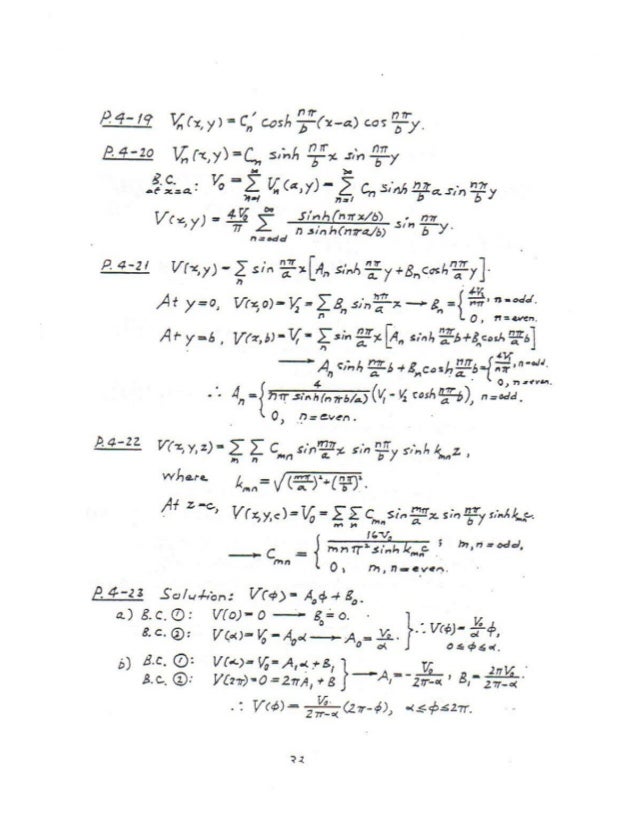 P.4-19 Vₙ(x,y) = Cₙ' cosh nπ/b (x-a) cos nπ/b y.
P.4-20 Vₙ(x,y) = Cₙ sinh nπ/b x sin nπ/b y
B.C. at x=a: V₀ = ∑_{n=1}^{∞} Vₙ(a,y) = ∑_{n=1}^{∞} Cₙ sinh nπ/b a sin nπ/b y
V(x,y) = 4V₀/π ∑_{n=odd}^{∞} sinh(nπx/b)/(n sinh(nπa/b)) sin nπ/b y.
P.4-21 V(x,y) = ∑ₙ sin nπ/a x [Aₙ sinh nπ/a y + Bₙ cosh nπ/a y].
At y=0, V(x,0) = V₂ = ∑ₙ Bₙ sin nπ/a x → Bₙ = { 4V₂/nπ, n=odd. 0, n=even.
At y=b, V(x,b) = V₁ = ∑ₙ sin nπ/a x [Aₙ sinh nπ/a b + Bₙ cosh nπ/a b]
→ Aₙ sinh nπ/a b + Bₙ cosh nπ/a b = { 4V₁/nπ, n=odd. 0, n=even.
∴ Aₙ = { 4/(nπ sinh(nπb/a)) (V₁ - V₂ cosh nπ/a b), n=odd.
0, n=even.
P.4-22 V(x,y,z) = ∑ₘ ∑ₙ Cₘₙ sin mπ/a x sin nπ/b y sinh kₘₙ z,
where kₘₙ = √((mπ/a)² + (nπ/b)²).
At z=c, V(x,y,c) = V₀ = ∑ₘ ∑ₙ Cₘₙ sin mπ/a x sin nπ/b y sinh kₘₙ c.
→ Cₘₙ = { 16V₀/(mnπ² sinh kₘₙ c) ; m,n=odd,
0, m,n=even.
P.4-23 Solution: V(φ) = A₀φ + B₀.
a) B.C. ①: V(0) = 0 → B₀ = 0.
B.C. ②: V(α) = V₀ = A₀α → A₀ = V₀/α. } ∴ V(φ) = V₀/α φ, 0≤φ≤α.
b) B.C. ①: V(α) = V₀ = A₁α + B₁
B.C. ②: V(2π) = 0 = 2πA₁ + B } → A₁ = - V₀/(2π-α), B₁ = 2πV₀/(2π-α).
∴ V(φ) = V₀/(2π-α) (2π-φ), α≤φ≤2π.